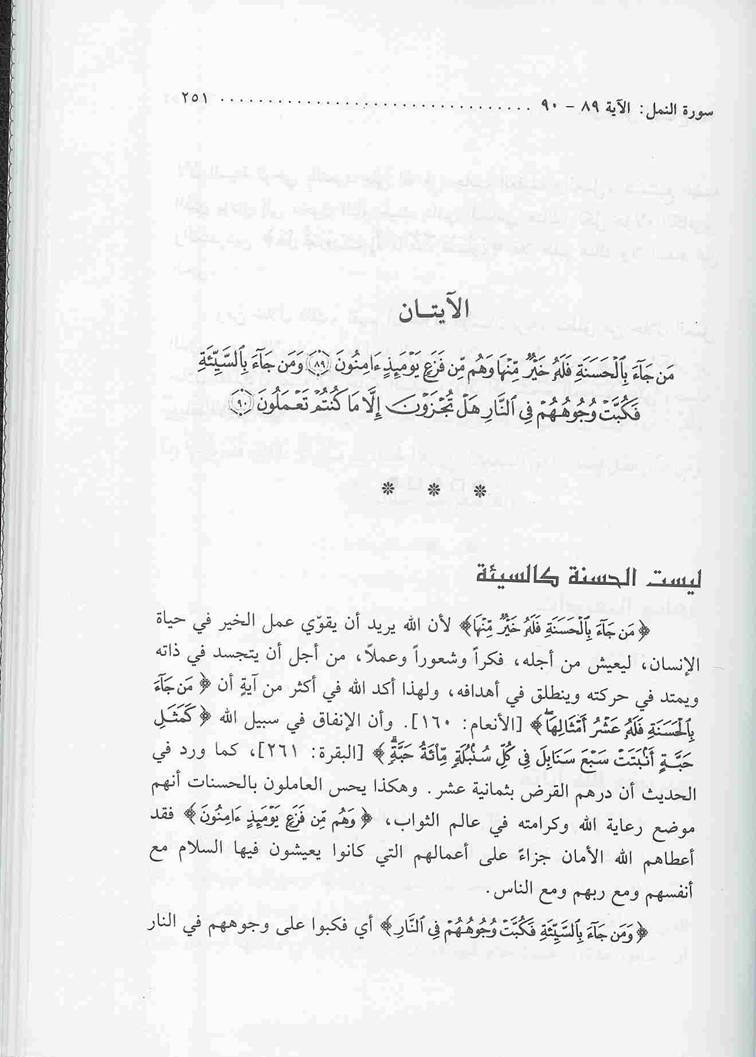 سورة النمل: الآية ٨٩ - ٩٠ ................................ ٢٥١
الآيتـان
مَن جَآءَ بِالْحَسَنَةِ فَلَهُ خَيْرٌ مِّنْهَا وَهُم مِّن فَزَعٍ يَوْمَئِذٍ ءَامِنُونَ ﴿٨٩﴾ وَمَن جَآءَ بِالسَّيِّئَةِ
فَكُبَّتْ وُجُوهُهُمْ فِي النَّارِ هَلْ تُجْزَوْنَ إِلَّا مَا كُنتُمْ تَعْمَلُونَ ﴿٩٠﴾
* * *
ليست الحسنة كالسيئة
﴿مَن جَآءَ بِالْحَسَنَةِ فَلَهُ خَيْرٌ مِّنْهَا﴾ لأن الله يريد أن يقوّي عمل الخير في حياة
الإنسان، ليعيش من أجله، فكراً وشعوراً وعملاً، من أجل أن يتجسد في ذاته
ويمتد في حركته وينطلق في أهدافه، ولهذا أكد الله في أكثر من آيةٍ أن ﴿مَن جَآءَ
بِالْحَسَنَةِ فَلَهُ عَشْرُ أَمْثَالِهَا﴾ [الأنعام: ١٦٠]. وأن الإنفاق في سبيل الله ﴿كَمَثَلِ
حَبَّةٍ أَنۢبَتَتْ سَبْعَ سَنَابِلَ فِي كُلِّ سُنۢبُلَةٍ مِّائَةُ حَبَّةٍ﴾ [البقرة: ٢٦١]، كما ورد في
الحديث أن درهم القرض بثمانية عشر. وهكذا يحس العاملون بالحسنات أنهم
موضع رعاية الله وكرامته في عالم الثواب، ﴿وَهُم مِّن فَزَعٍ يَوْمَئِذٍ ءَامِنُونَ﴾ فقد
أعطاهم الله الأمان جزاءً على أعمالهم التي كانوا يعيشون فيها السلام مع
أنفسهم ومع ربهم ومع الناس.
﴿وَمَن جَآءَ بِالسَّيِّئَةِ فَكُبَّتْ وُجُوهُهُمْ فِي النَّارِ﴾ أي فكبوا على وجوههم في النار